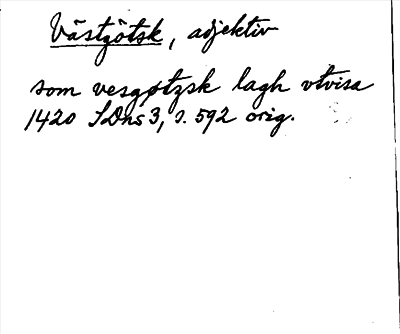 Västgötsk, adjektiv
som vesgøtzsk lagh vtvisa
1420 SDns 3, s. 592 orig.